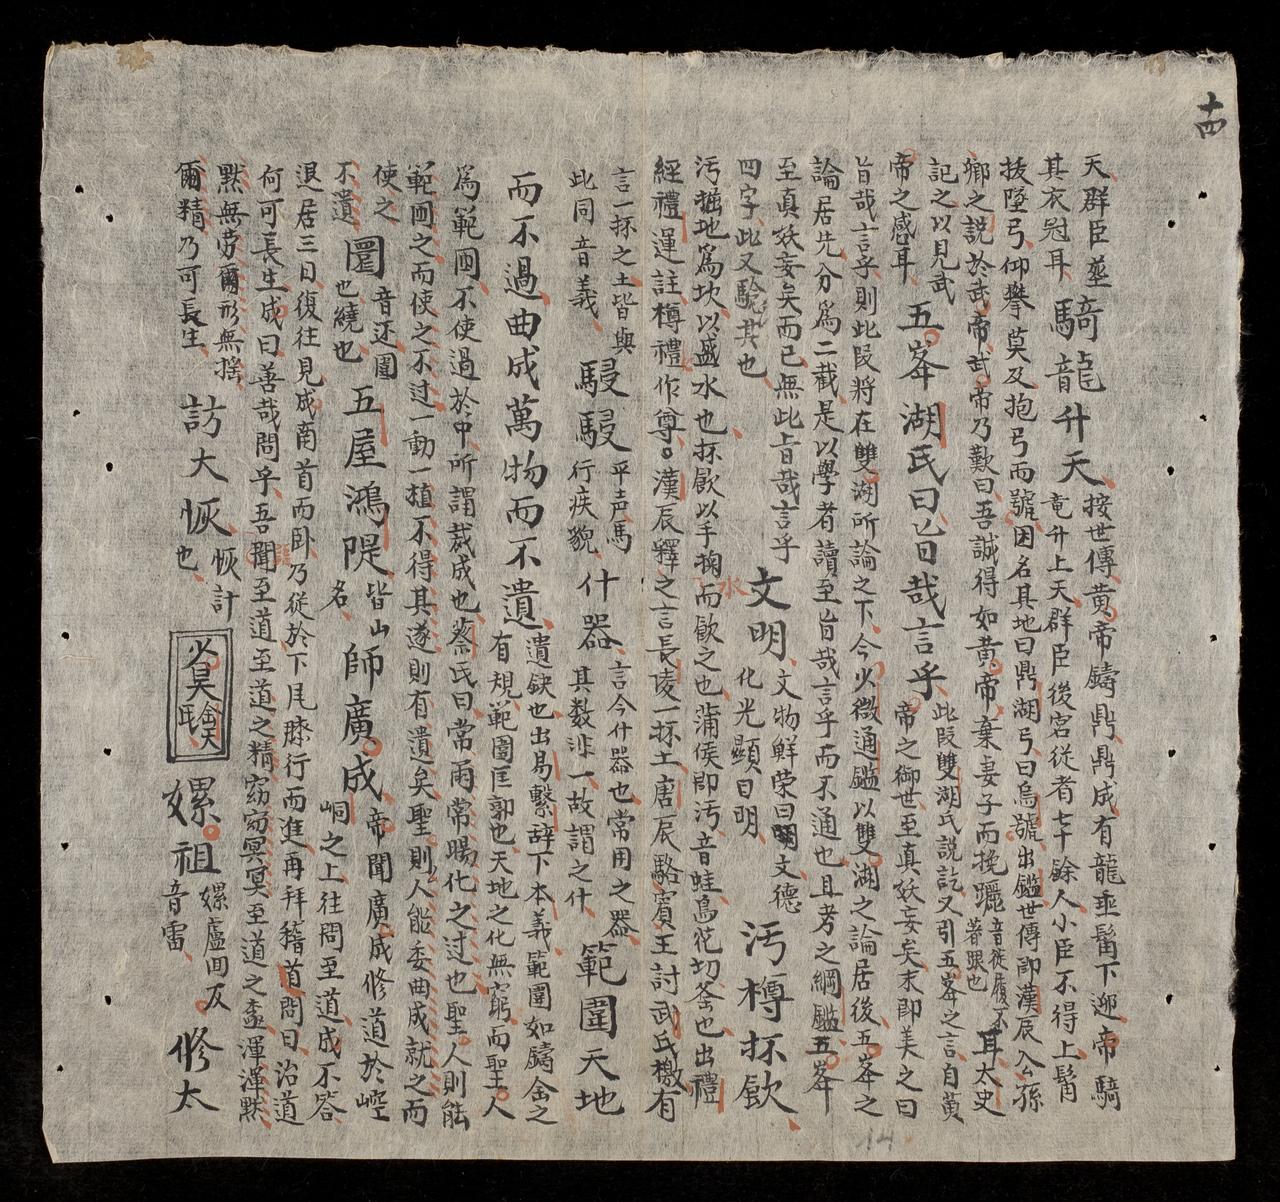 十四
天群臣塟
其衣冠耳
騎龍升天
按世傳黃帝鑄鼎鼎成有龍垂髯下迎帝騎
竜升上天群臣後宮從者七十餘人小臣不得上髯
拔墜弓仰攀莫及抱弓而號因名其地曰鼎湖弓曰烏號出鑑世傳即漢辰公孫
鄉之説於武帝武帝乃歎曰吾誠得如黄帝棄妻子而挽躧
音徙履不
著跟也
耳太史
記之以見武
帝之感耳
五峯湖氏曰㫖哉言乎
此段雙湖氏説訖又引五峯之言自黄
帝之御世至真妖妄矣末即美之曰
旨哉言乎則此段將在雙湖所論之下今火微通鑑以雙湖之論居後五峯之
論居先分爲二截是以學者讀至旨哉言乎而不通也且考之綱鑑五峯
至真妖妄矣而已無此旨哉言乎
四字此又驗其也
文明
文物鮮荣曰明文德
化光顯曰明
汚樽抔飲
汚掘地爲坎以盛水也抔飲以手掬水而飲之也蒲侯即汚音蛙烏花切釜也出禮
經禮運註樽禮作尊漢辰釋之言長陵一抔土唐辰駱賓王討武氏檄有
言一抔之土皆與
此同音義
駸駸
平声馬
行疾貌
什器
言今什器也常用之器
其数非一故謂之什
範圍天地
而不過曲成萬物而不遺
遺缺也出易繫辞下本義範圍如鑄金之
有規範圍匡郭也天地之化無窮而聖人
爲範囲不使過於中所謂裁成也蔡氏曰常雨常暘化之过也聖人則能
範囲之而使之不过一動一植不得其遂則有遺矣聖則人能委曲成就之而
使之
不遺
圜
音还圍
也繞也
五屋鴻隄
皆山
名
師廣成
帝聞廣成修道於崆
峒之上往問至道成不答
退居三日復往見成南首而卧乃從於下凮膝行而進再拜稽首問曰治道
何可長生成曰善哉問乎吾聞至道至道之精窈窈冥冥至道之渾渾黙
黙無劳爾形無揺
爾精乃可長生
訪大恢
恢計
也
嫘祖
嫘盧回反
音雷
修太
14